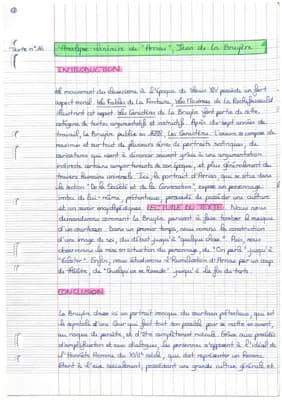 Texte n°16
Analyse linéaire de "Arrias", Jean de La Bruyère
INTRODUCTION:
Le mouvement du classicisme à l'époque de Louis XIV possède un fort
aspect moral. Les Fables de La Fontaine, Les Maximes de La Rochefoucauld
illustrent cet aspect. Les Caractères de La Bruyère font partie de cette
catégorie de textes argumentatifs et instructifs. Après dix-sept années de
travail, La Bruyère publie en Les Caractères. L'œuvre se compose de
maximes et surtout de plusieurs séries de portraits satiriques, de
caricatures qui visent à dénoncer souvent grâce à une argumentation
indirecte certains comportements de son époque, et plus généralement du
travers humains universels. Ici, le portrait d'Arrias, qui se situe dans
la section "De la Société et de la Conversation", expose un personnage
imbu de lui-même, prétentieux, persuadé de posséder une culture
et un savoir encyclopédiques. LECTURE DU TEXTE. Nous nous
demanderons comment La Bruyère parvient à faire tomber le masque
d'un courtisan. Dans un premier temps, nous verrons la construction
d'une image de soi, du début jusqu'à "quelque chose". Puis, nous
observerons la mise en situation du personnage, de "On parle" jusqu'à
"éclater". Enfin, nous étudierons l'humiliation d'Arrias par un coup
de théâtre, de "Quelqu'un se hasarde" jusqu'à la fin du texte.
CONCLUSION:
La Bruyère dresse ici un portrait moqueur du courtisan prétentieux, qui est
le symbole d'une Cour qui fait tout son possible pour se mettre en avant,
au risque de perdre, et d'être complètement ridicule. Grâce aux procédés
d'amplification et aux dialogues, le personnage s'opposent à l'idéal de
l'Honnête Homme du XVIIe siècle, qui doit représenter un homme
étant à l'aise socialement, possédant une grande culture générale et